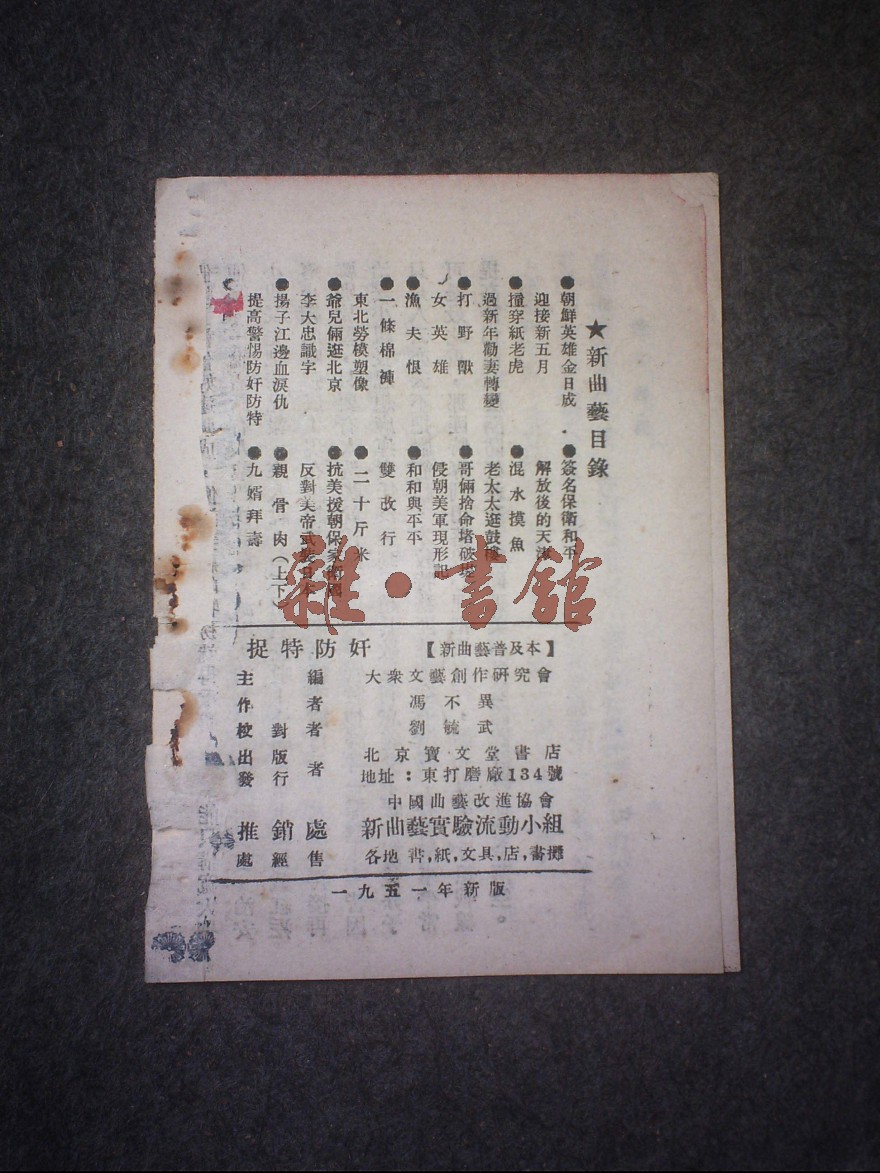 ★新曲藝目錄
●朝鮮英雄金日成
迎接新五月
●撞穿紙老虎
過新年勸妻轉變
●打野獸
女英雄
●漁夫恨
●一條棉褲
東北勞模塑像
●爺兒倆逛北京
李大忠識字
●揚子江邊血淚仇
提高警惕防奸防特
●簽名保衛和平
解放後的天津
●混水摸魚
老太太逛鼓樓
●哥倆捨命堵破堤
侵朝美軍現形記
●和和與平平
雙改行
●二十斤米
●抗美援朝保家衛國
反對美帝武裝日本
●親骨肉(上下)
●九婿拜壽
雜·書館
捉特防奸【新曲藝普及本】
主編 大衆文藝創作研究會
作者 馮不異
校對者 劉毓武
出版 北京寶文堂書店
發行者 地址:東打磨廠134號
中國曲藝改進協會
推銷處 新曲藝實驗流動小組
處經售 各地書,紙,文具,店,書攤
一九五一年新版